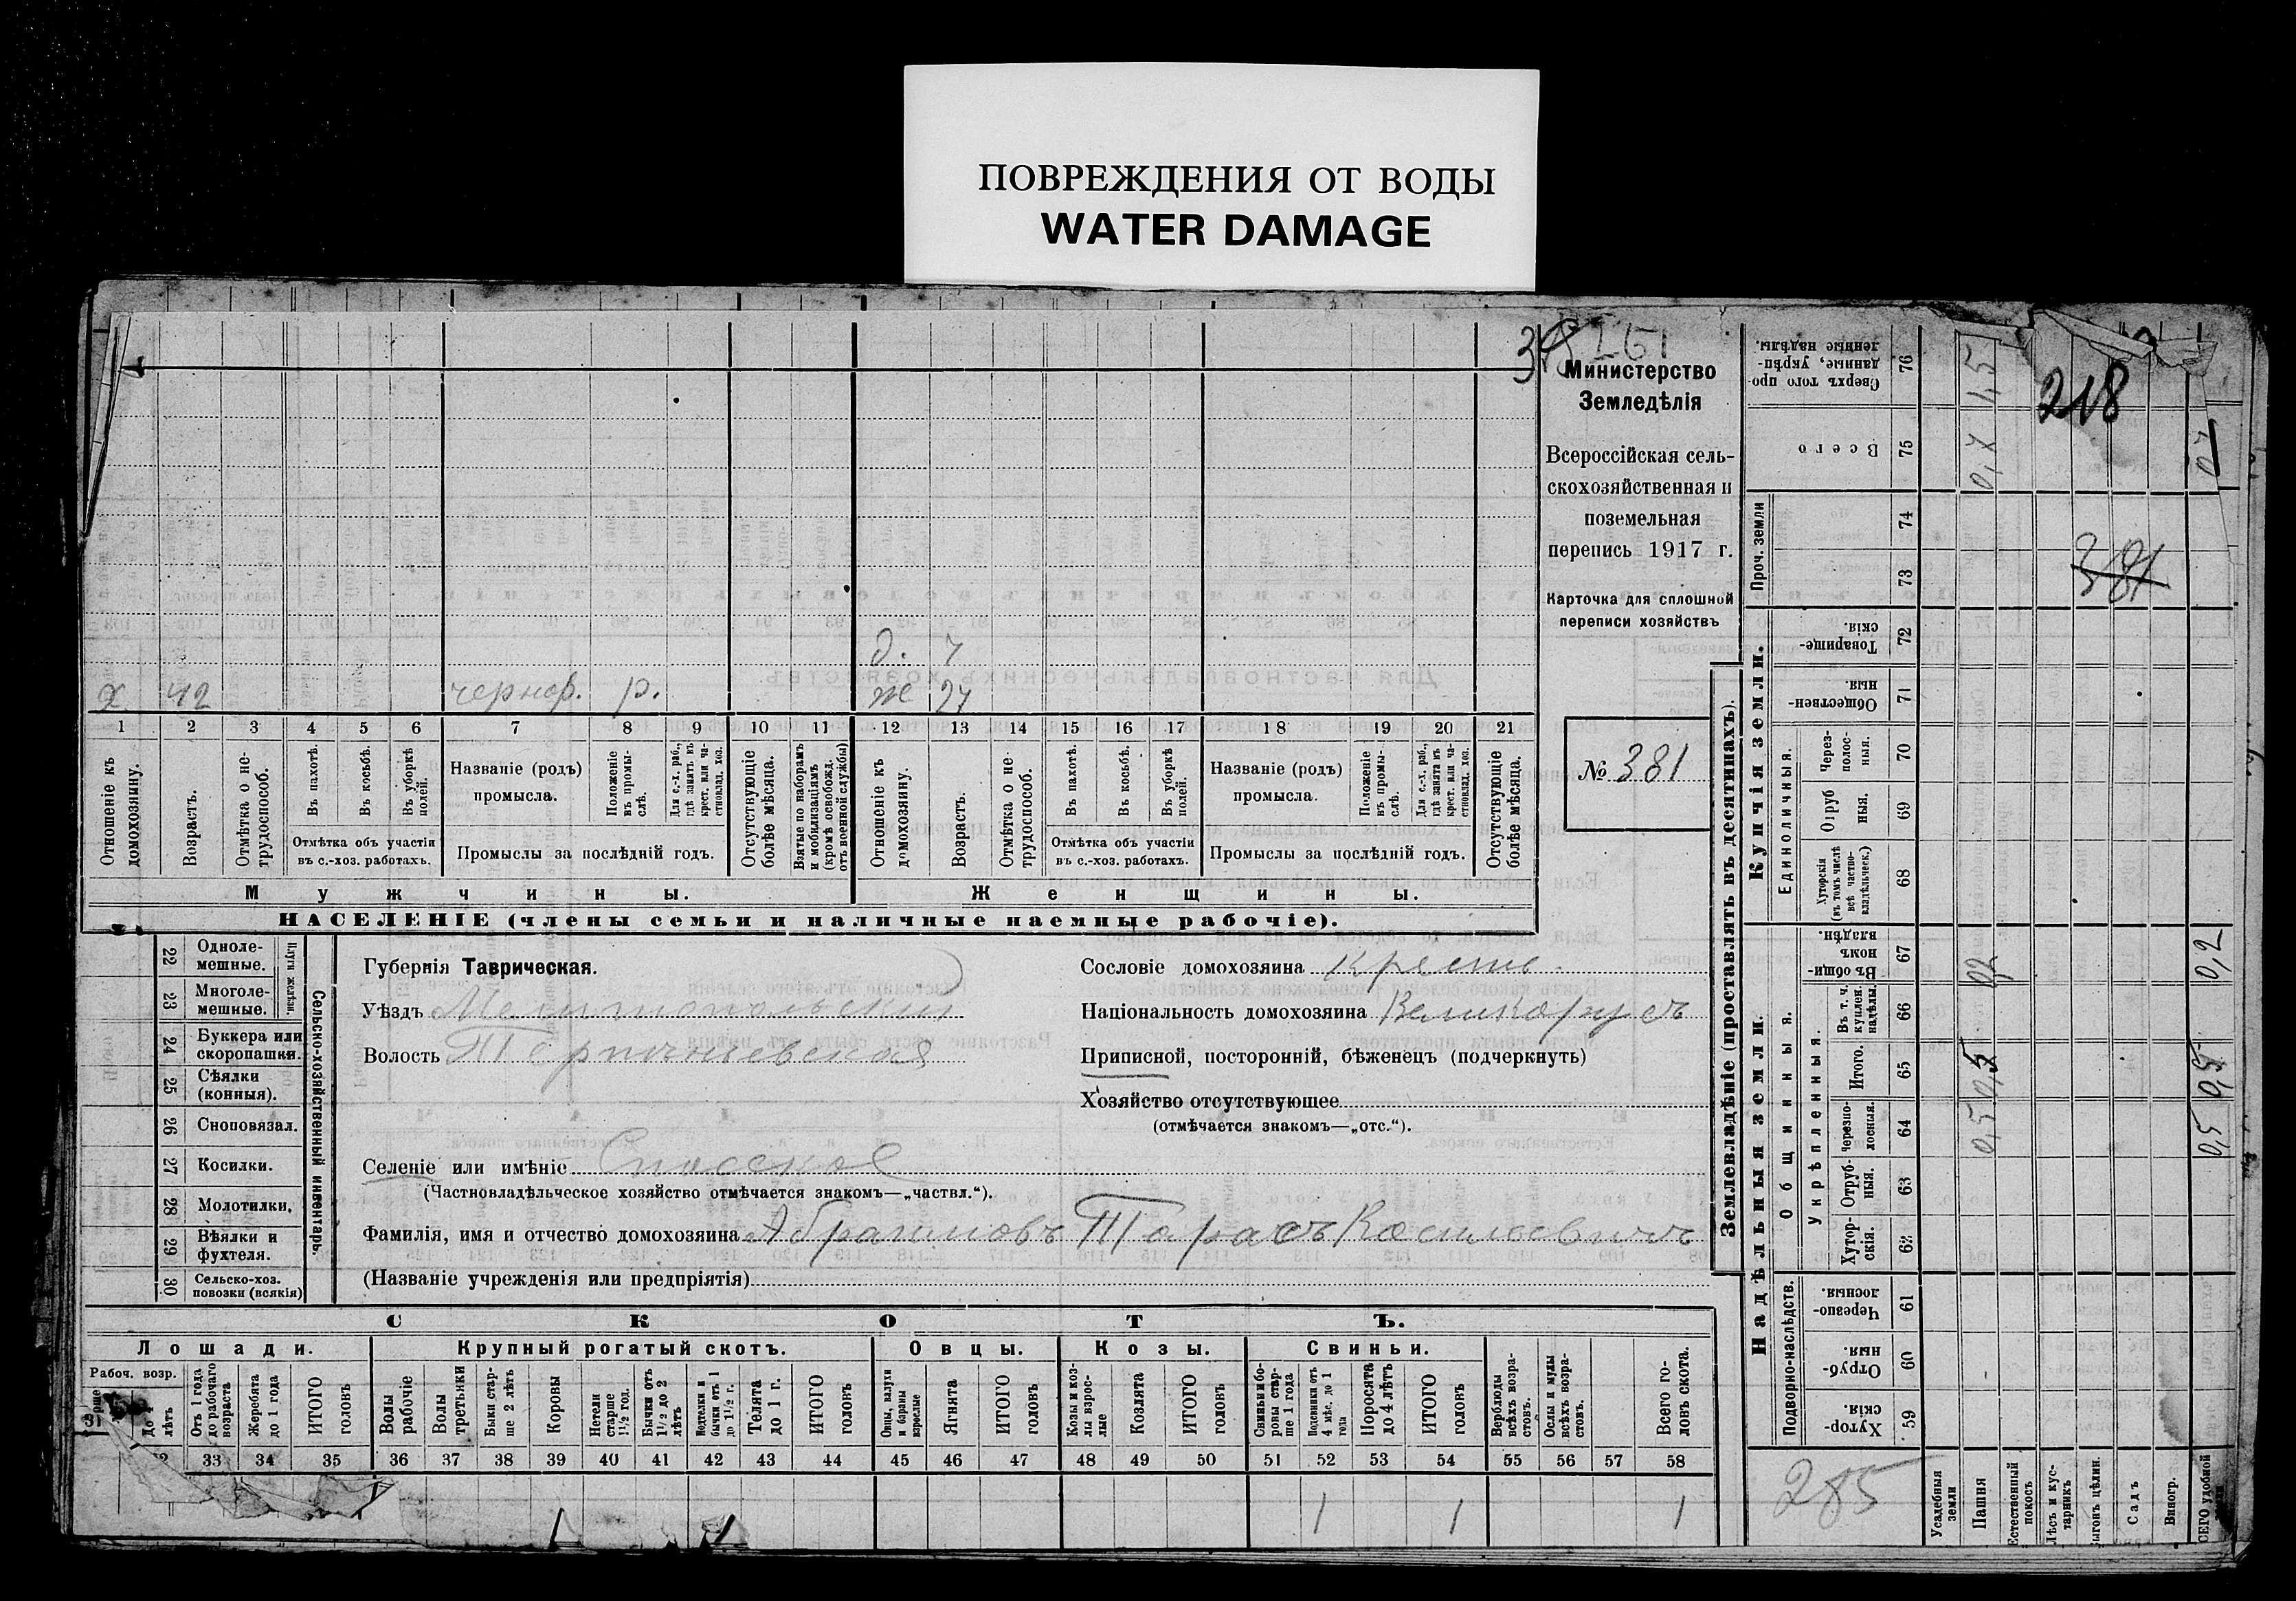 ПОВРЕЖДЕНИЯ ОТ ВОДЫ
WATER DAMAGE
Министерство
Земледѣлія
Всероссійская сель-
скохозяйственная и
поземельная
перепись 1917 г.
Карточка для сплошной
переписи хозяйствъ
№ 381
д. 7
х 42 чернор. р. ж 27
1 2 3 4 5 6 7 8 9 10 11 12 13 14 15 16 17 18 19 20 21
Отношеніе къ домохозяину.
Возрастъ.
Отмѣтка о не-трудоспособ.
Въ пахотѣ.
Въ косьбѣ.
Въ уборкѣ полей.
Отмѣтка объ участіи
въ с.-хоз. работахъ.
Названіе (родъ)
промысла.
Положеніе въ промы-слѣ.
Для с.-х. раб., гдѣ занятъ въ крест. или ча-стновлад. хоз.
Промыслы за послѣдній годъ.
Отсутствующіе болѣе мѣсяца.
Взятые по наборамъ и мобилизаціямъ (кромѣ освобожд. отъ военной службы)
Отношеніе къ домохозяину.
Возрастъ.
Отмѣтка о не-трудоспособ.
Въ пахотѣ.
Въ косьбѣ.
Въ уборкѣ полей.
Отмѣтка объ участіи
въ с.-хоз. работахъ.
Названіе (родъ)
промысла.
Положеніе въ промы-слѣ.
Для с.-х. раб., гдѣ занята въ крест. или ча-стновлад. хоз.
Промыслы за послѣдній годъ.
Отсутствующіе болѣе мѣсяца.
Мужчины.
Женщины.
НАСЕЛЕНІЕ (члены семьи и наличные наемные рабочіе).
22 Одноле-мешные.
23 Многоле-мешные.
Плуги желѣзн.
24 Буккера или скоропашки.
25 Сѣялки (конныя).
26 Сноповязал.
27 Косилки.
28 Молотилки.
29 Вѣялки и фухтеля.
30 Сельско-хоз. повозки (всякія)
Сельско-хозяйственный инвентарь.
Губернія Таврическая.
Уѣздъ Мелитопольскій
Волость Терпѣньевская
Селеніе или имѣніе Спасское
(Частновладѣльческое хозяйство отмѣчается знакомъ—„частвл.“).
Фамилія, имя и отчество домохозяина Абрамовъ Тарасъ Васильевичъ
(Названіе учрежденія или предпріятія)
Сословіе домохозяина Крестьн.
Національность домохозяина Великорусъ
Приписной, посторонній, бѣженецъ (подчеркнуть)
Хозяйство отсутствующее
(отмѣчается знакомъ—„отс.“).
СКОТЪ.
Лошади.
Крупный рогатый скотъ.
Овцы.
Козы.
Свиньи.
Рабоч. возр.
Отъ 1 года до рабочаго возраста
Жеребята до 1 года
ИТОГО головъ
Волы рабочіе
Волы третьяки
Быки стар-ше 2 лѣтъ
Коровы
Нетели старше 1½ год.
Бычки отъ 1½ до 2 лѣтъ
Нетелки и бычки отъ 1 до 1½ г.
Телята до 1 г.
ИТОГО головъ
Овцы, валухи и бараны взрослые
Ягнята
ИТОГО головъ
Козы и коз-лы взрос-лые
Козлята
ИТОГО головъ
Свиньи и бо-ровы стар-ше 1 года
Подсвинки отъ 4 мѣс. до 1 года
Поросята до 4 лѣтъ
ИТОГО головъ
Верблюды всѣхъ возра-стовъ.
Ослы и мулы всѣхъ возра-стовъ.
Всего го-ловъ скота.
33 34 35 36 37 38 39 40 41 42 43 44 45 46 47 48 49 50 51 52 53 54 55 56 57 58
1 1 1 1 1
Землевладѣніе (проставлять въ десятинахъ).
Надѣльныя земли.
Купчія земли.
Проч. земли
Подворно-наслѣдств.
Общинныя.
Укрѣпленныя.
Единоличныя.
Хутор-скія. 59
Отруб-ныя. 60
Черезпо-лосныя. 61
Хутор-скія. 62
Отруб-ныя. 63
Черезпо-лосныя. 64
Итого. 65
Въ т. ч. куплен. надѣлы. 66
Въ общи-номъ владѣн. 67
Хуторскія (въ томъ числѣ всѣ частно-владѣльческ.) 68
Отруб ныя. 69
Через-полос-ныя. 70
Обществен-ныя 71
Товарище-скія. 72
73
74
Всего 75
Сверхъ того про-данные, укрѣп-ленные надѣлы. 76
Усадебныя земли
Пашня
Естественный покосъ
Лѣсъ и кус-тарникъ
Выгонъ цѣлин.
Садъ
Виногр.
218
381
285
0,2
0,5 0,5